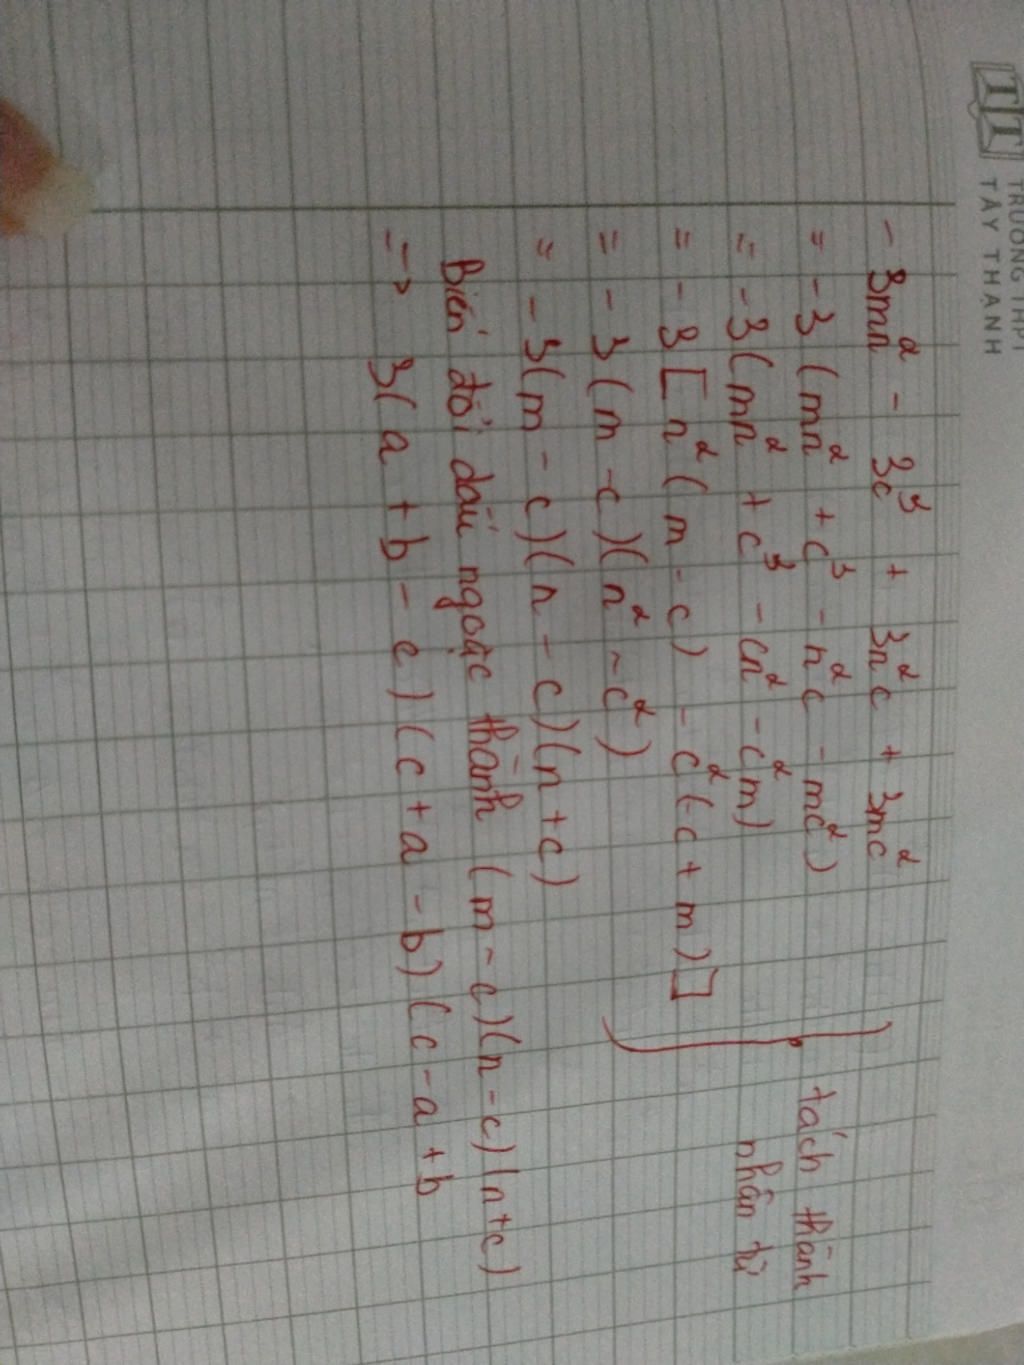 TRƯỜNG THPT
TÂY THẠNH
- 3mn² - 3c³ + 3n²c + 3mc²
= -3 (mn² + c³ - n²c - mc²)
= -3(mn² + c³ - cn² - c²m)
= -3[n²(m - c) - c²(-c + m)]
= -3(m - c)(n² - c²)
= -3(m - c)(n - c)(n + c)
tách thành
nhân tử
Biến đổi dấu ngoặc thành (m - c)(n - c)(n + c)
-> 3(a + b - c)(c + a - b)(c - a + b